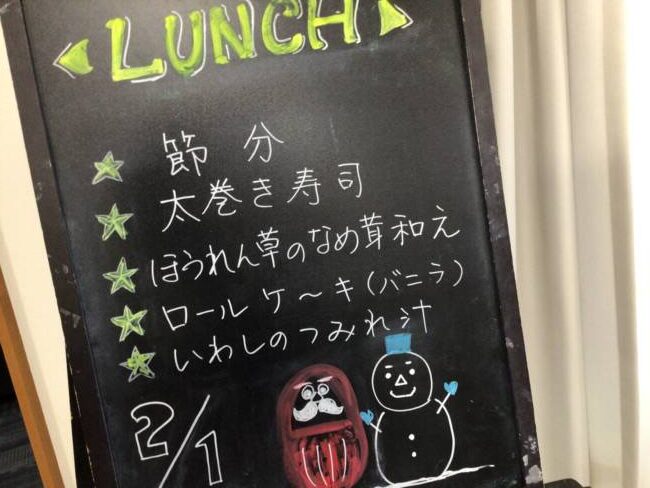 LUNCH
節分
太巻き寿司
ほうれん草のなめ茸和え
ロールケ〜キ(バニラ)
いわしのつみれ汁
2/1